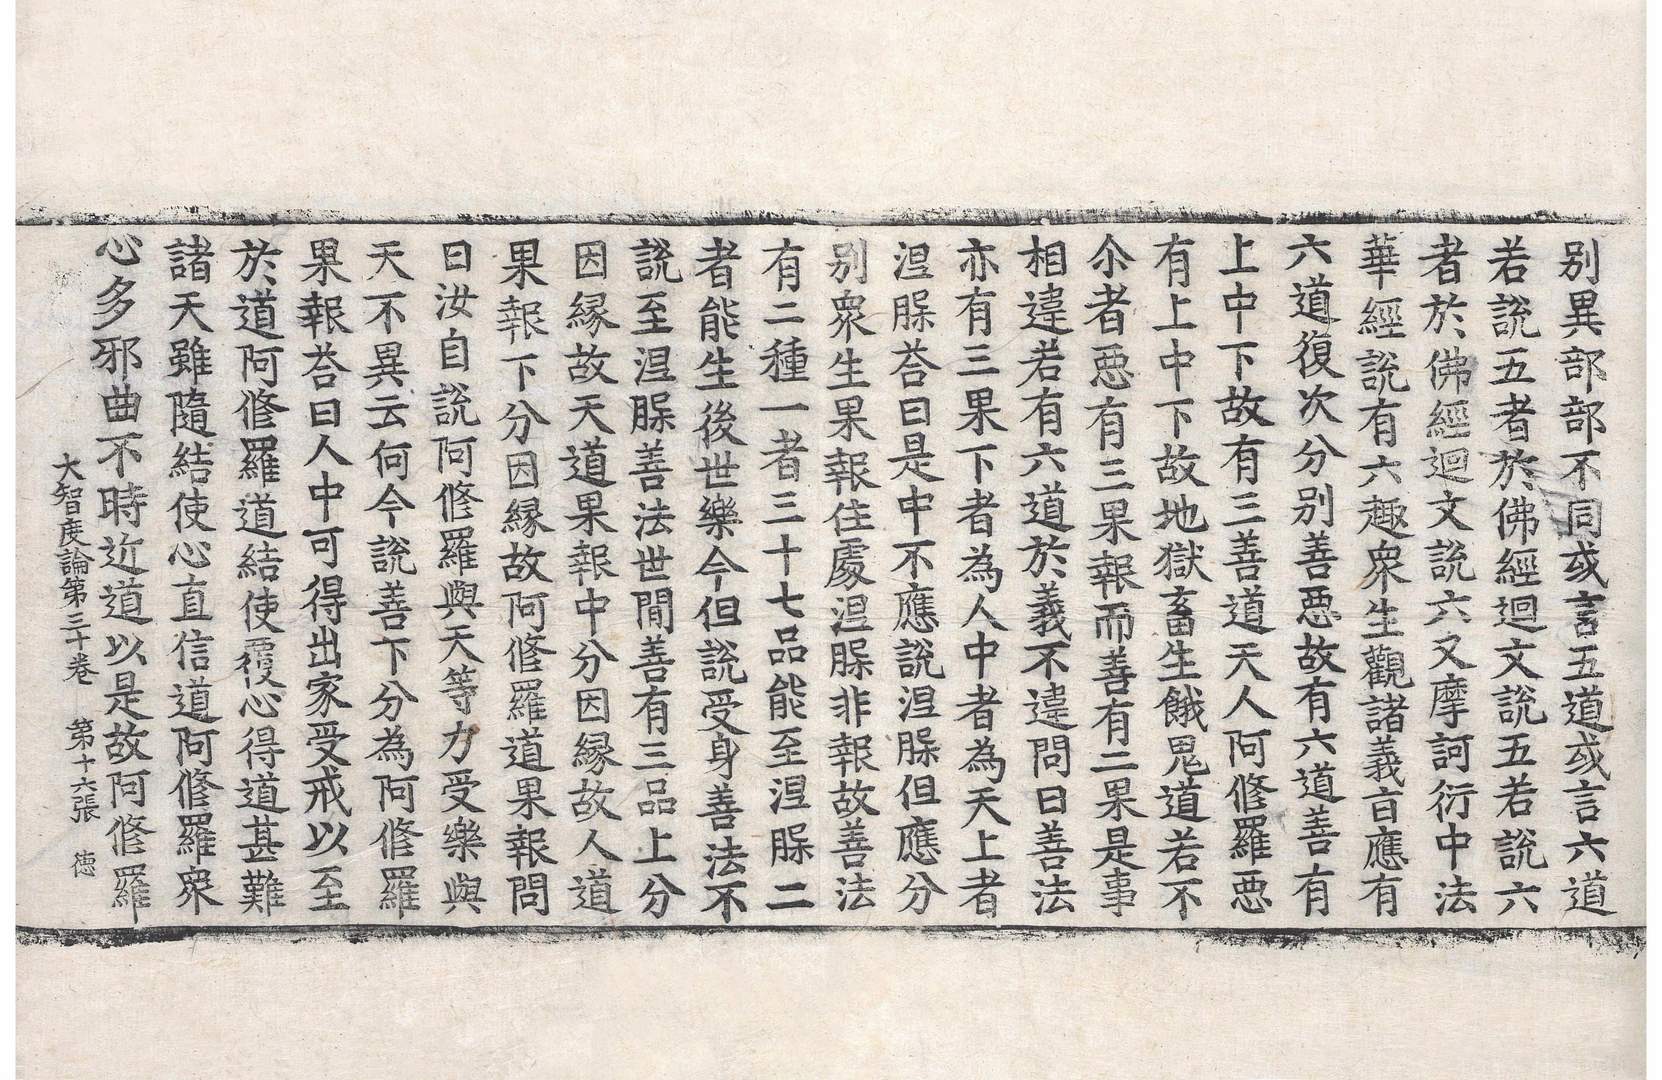 别異部部不同或言五道或言六道
若說五者於佛經迴文說五若說六
者於佛經迴文說六又摩訶衍中法
華經說有六趣衆生觀諸義盲應有
六道復次分别善惡故有六道善有
上中下故有三善道天人阿修羅惡
有上中下故地獄畜生餓鬼道若不
尒者惡有三果報而善有二果是事
相違若有六道於義不違問曰善法
亦有三果下者為人中者為天上者
涅槃荅曰是中不應說涅槃但應分
别衆生果報住處涅槃非報故善法
有二種一者三十七品能至涅槃二
者能生後世樂今但說受身善法不
說至涅槃善法世間善有三品上分
因縁故天道果報中分因縁故人道
果報下分因縁故阿修羅道果報問
曰汝自說阿修羅與天等力受樂與
天不異云何今說善下分為阿修羅
果報荅曰人中可得出家受戒以至
於道阿修羅道結使覆心得道甚難
諸天雖隨結使心直信道阿修羅衆
心多邪曲不時近道以是故阿修羅
大智度論第三十卷 第十六張 德